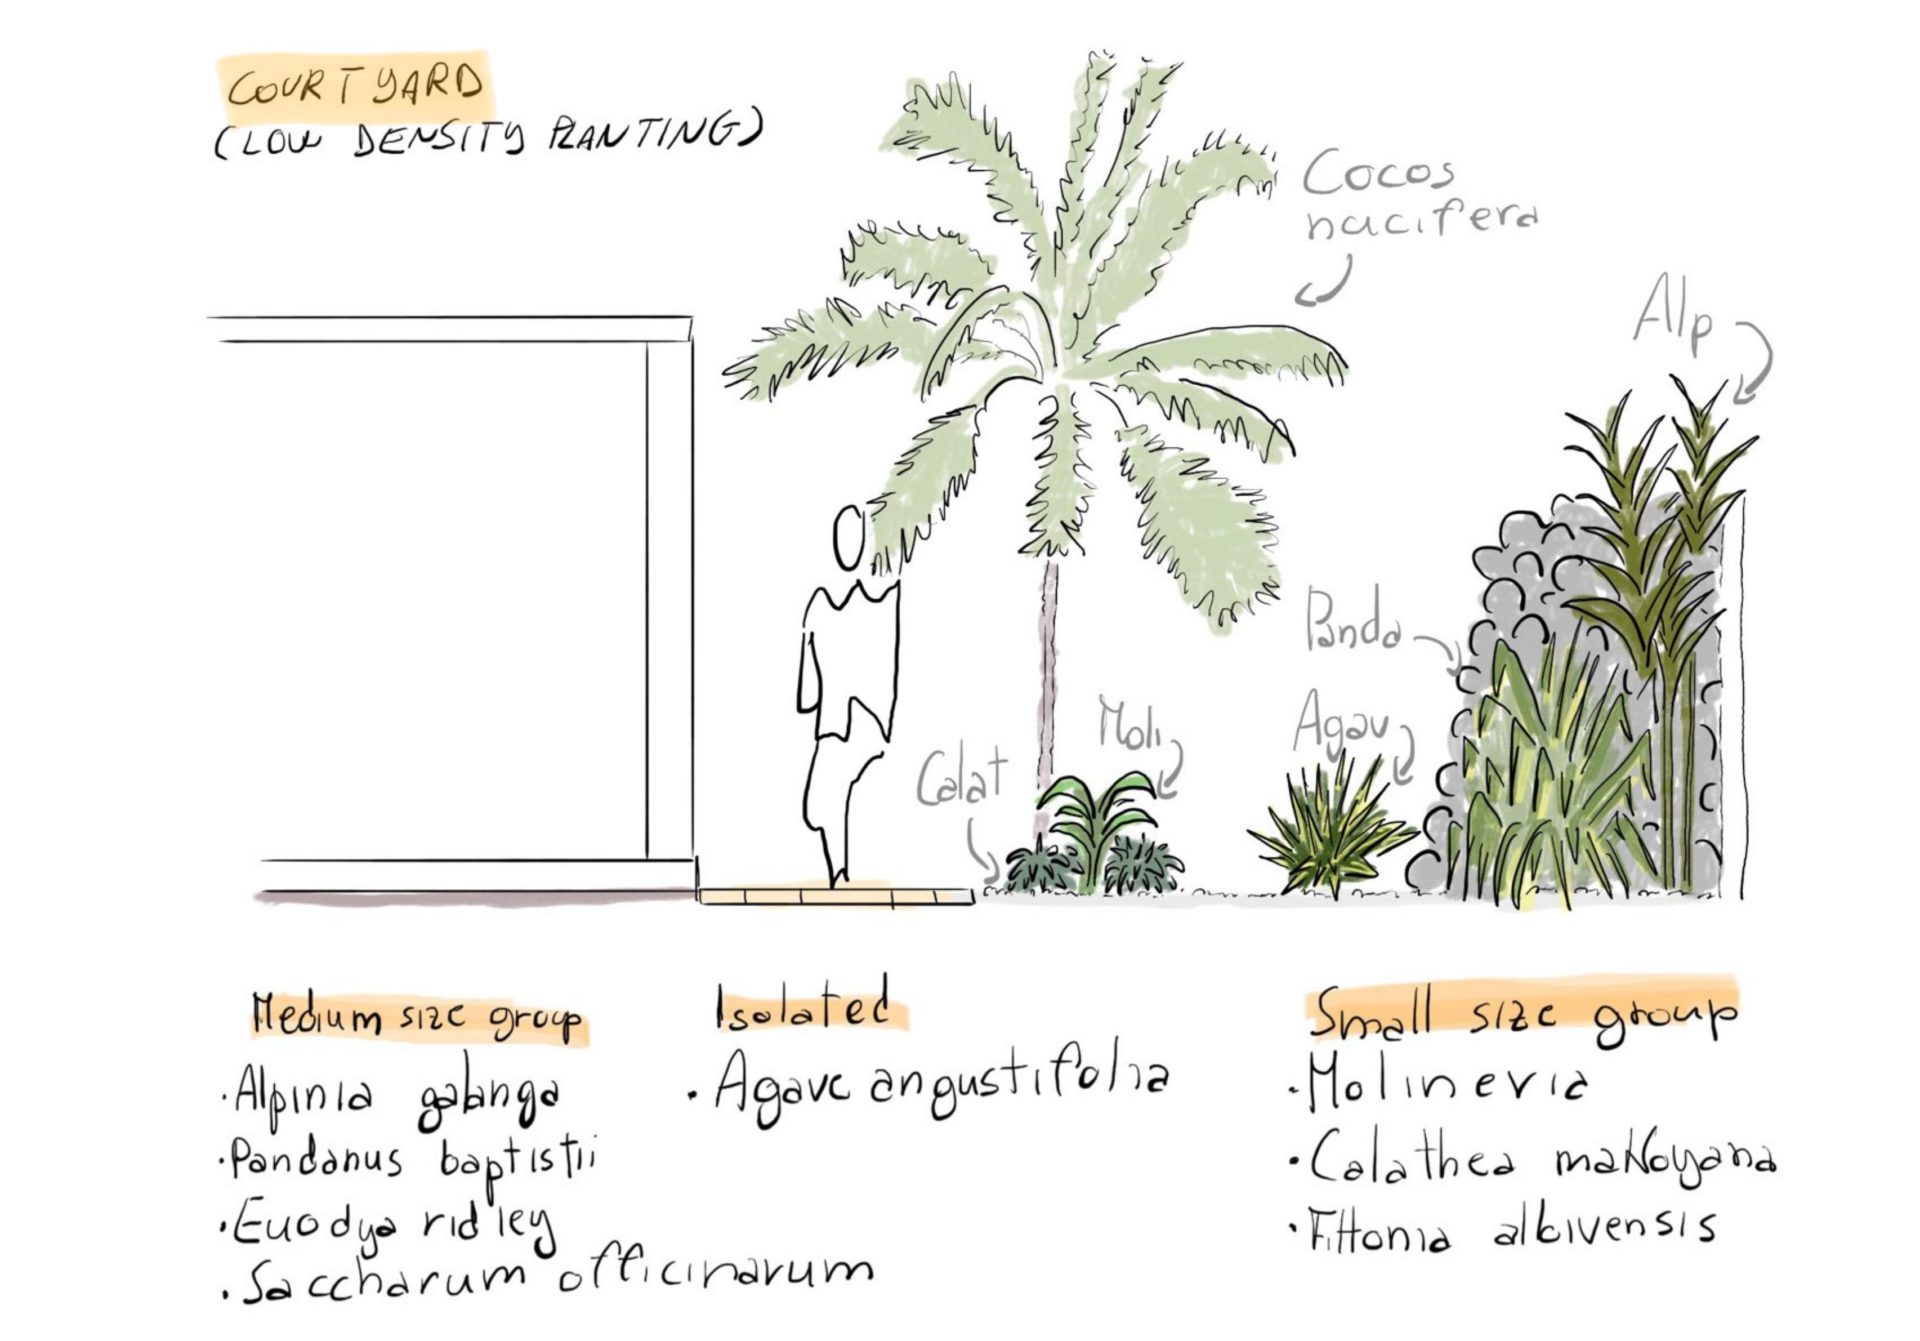 COURTYARD
(LOW DENSITY PLANTING)
Cocos
nucifera
Alp
Panda
Agav
Moli
Calat
Medium size group
·Alpinia galanga
·Pandanus baptistii
·Euodya ridley
·Saccharum officinarum
Isolated
·Agave angustifolia
Small size group
·Molineria
·Calathea makoyana
·Fittonia albivensis